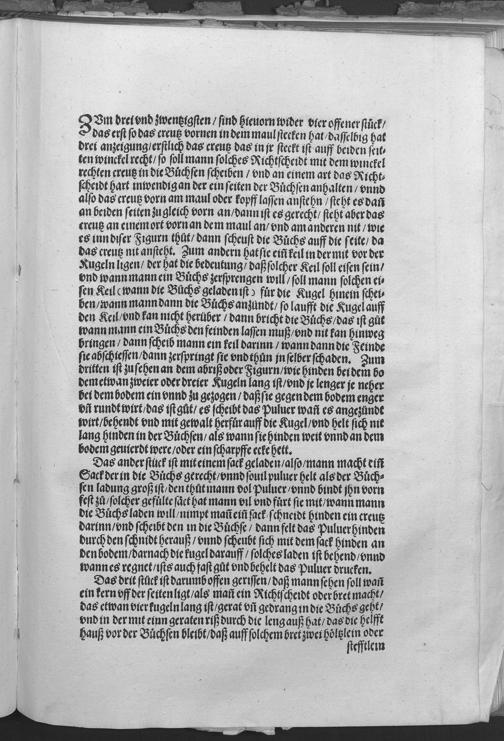 ZVm drei vnd zwentzigsten / sind hieuorn wider vier offener stück /
das erst so das creutz vornen in dem maul stecken hat / dasselbig hat
drei anzeigung / erstlich das creutz das in jr steckt ist auff beiden seit-
ten winckel recht / so soll mann solches Richtscheidt mit dem winckel
rechten creutz in die Büchsen scheiben / vnd an einem art das Richt-
scheidt hart inwendig an der ein seiten der Büchsen anhalten / vnnd
also das creutz vorn am maul oder kopff lassen anstehn / steht es dañ
an beiden seiten zu gleich vorn an / dann ist es gerecht / steht aber das
creutz an einem ort vorn an dem maul an / vnd am anderen nit / wie
es inn diser Figurn thüt / dann scheust die Büchs auff die seite / da
das creutz nit ansteht. Zum andern hat sie eiñ keil in der mit vor der
Kugeln ligen / der hat die bedeutung / daß solcher Keil soll eisen sein /
vnd wann mann ein Büchs zersprengen will / soll mann solchen ei-
sen Keil (wann die Büchs geladen ist) für die Kugel hinein schei-
ben / wann mann dann die Büchs anzündt / so laufft die Kugel auff
den Keil / vnd kan nicht herüber / dann bricht die Büchs / das ist güt
wann mann ein Büchs den feinden lassen muß / vnd nit kan hinweg
bringen / dann scheib mann ein keil darinn / wann dann die Feinde
sie abschiessen / dann zerspringt sie vnd thün jn selber schaden. Zum
dritten ist zu sehen an dem abriß oder Figurn / wie hinden bei dem bo
dem etwan zweier oder dreier Kugeln lang ist / vnd je lenger je neher
bei dem bodem ein vnnd zu gezogen / daß sie gegen dem bodem enger
vñ rundt wirt / das ist güt / es scheibt das Puluer wañ es angezündt
wirt / behendt vnd mit gewalt herfür auff die Kugel / vnd helt sich nit
lang hinden in der Büchsen / als wann sie hinden weit vnnd an dem
bodem geuierdt were / oder ein scharpffe ecke hett.
Das ander stück ist mit einem sack geladen / also / mann macht eiñ
Sack der in die Büchs gerecht / vnnd souil puluer helt als der Büch-
sen ladung groß ist / den thüt mann vol Puluer / vnnd bindt jhn vorn
fest zü / solcher gefülte säct hat mann vil vnd fürt sie mit / wann mann
die Büchs laden will / nimpt mañ eiñ sack / schneidt hinden ein creutz
darinn / vnnd scheibt den in die Büchse / dann felt das Puluer hinden
durch den schnidt herauß / vnnd scheubt sich mit dem sack hinden an
den bodem / darnach die kugel darauff / solches laden ist behend / vnnd
wann es regnet / ists auch fast güt vnd behelt das Puluer drucken.
Das drit stück ist darumb offen gerissen / daß mann sehen soll wañ
ein kern vff der seiten ligt / als mañ ein Richtscheidt oder bret macht /
das etwan vier kugeln lang ist / gerat vñ gedrang in die Büchs geht /
vnd in der mit einn geraten riß durch die leng auß hat / das die helfft
hauß vor der Büchsen bleibt / daß auff solchem bret zwei höltzlein oder
stefftlein